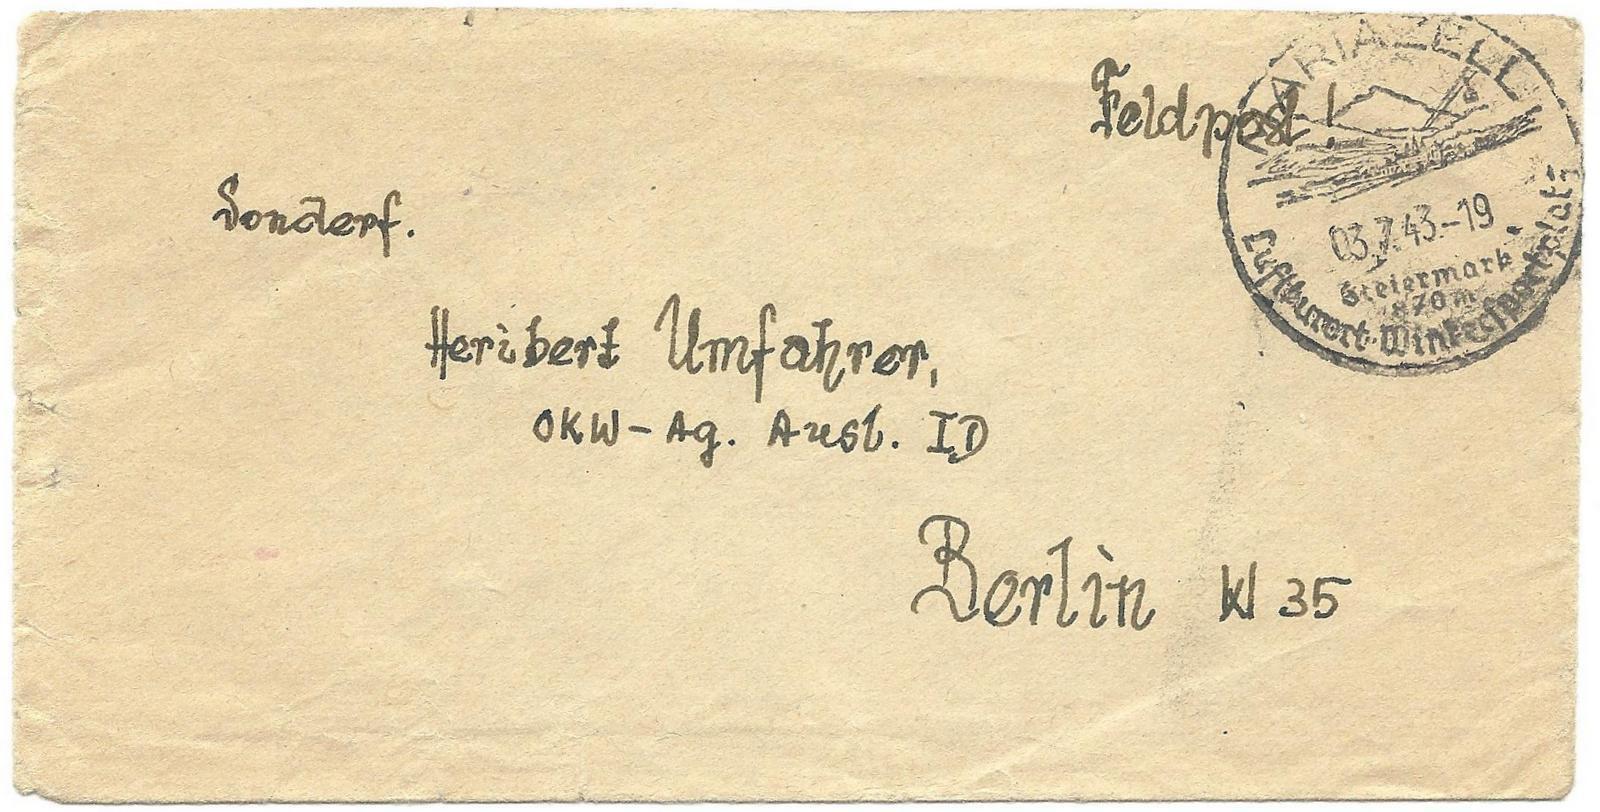 Feldpost!
MARIAZELL
03.7.43.-19
Steiermark
870 m
Luftkurort-Wintersportplatz
Sonderf.
Heribert Umfahrer,
OKW - Ag. Ausl. ID
Berlin W 35